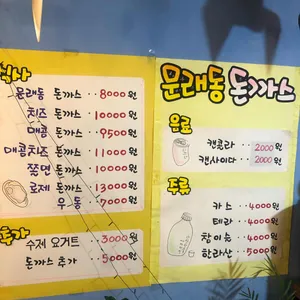 식사
문래동 돈까스 ·· 8000원
치즈 돈까스 ·· 10000원
매콤 돈까스 ·· 9500원
매콤치즈 돈까스 ·· 11000원
쫄면 돈까스 ·· 10000원
로제 돈까스 ·· 13000원
우동 ·· 7000원
추가
수제 요거트 ·· 3000원
돈까스 추가 ·· 5000원
문래동 돈까스
음료
캔콜라 ·· 2000원
캔사이다 ·· 2000원
주류
카스 ·· 4000원
테라 ·· 4000원
참이슬 ·· 4000원
한라산 ·· 5000원